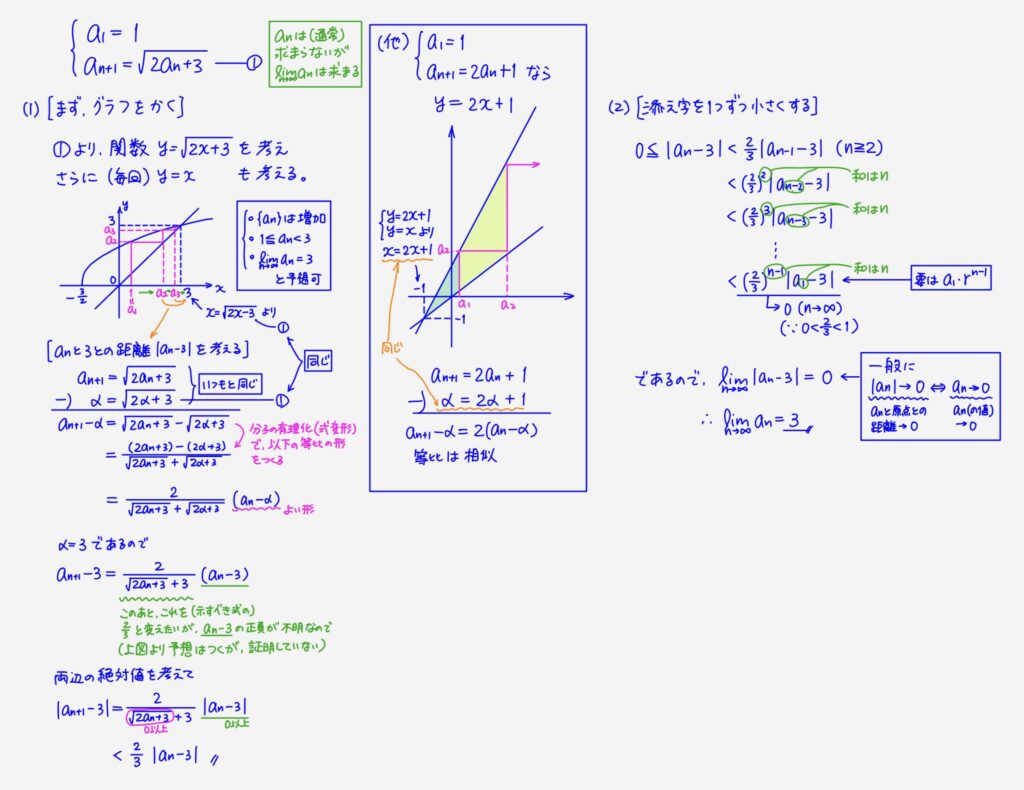 a₁ = 1
aₙ₊₁ = √(2aₙ+3) ―①
anは(通常)
求まらないが
lim n→∞ anは求まる
(1) [まず、グラフをかく]
①より、関数 y=√(2x+3) を考え
さらに(毎回) y=x も考える。
y
3
a₃
a₂
0
-3/2
1
a₁
a₂
a₃
3
x
x=√(2x-3) より
①
○ {an}は増加
○ 1≦an<3
○ lim n→∞ an = 3
と予想可
[anと3との距離 |an-3| を考える]
an+1 = √(2an+3)
-) α = √(2α+3) ―①
いつもと同じ
同じ
an+1-α = √(2an+3) - √(2α+3)
分子の有理化(式変形)
で、以下の等比の形
をつくる
= ((2an+3)-(2α+3))/(√(2an+3)+√(2α+3))
= 2/(√(2an+3)+√(2α+3)) (an-α)
よい形
α=3 であるので
an+1-3 = 2/(√(2an+3)+3) (an-3)
このあと、これを(示すべき式の)
2/3 と変えたいが、an-3の正負が不明なので
(上図より予想はつくが、証明していない)
両辺の絶対値を考えて
|an+1-3| = 2/(√(2an+3)+3) |an-3|
0以上
0以上
< 2/3 |an-3| 〃
(他)
a₁=1
an+1=2an+1 なら
y=2x+1
y=2x+1
y=x より
x=2x+1
-1
-1
a₂
a₁
a₂
同じ
an+1 = 2an+1
-) α = 2α+1
an+1-α = 2(an-α)
等比は相似
(2) [添え字を1つずつ小さくする]
0≦|an-3| < 2/3 |an-1-3| (n≧2)
< (2/3)² |an-2-3| 和はn
< (2/3)³ |an-3-3| 和はn
⋮
< (2/3)ⁿ⁻¹ |a₁-3| 和はn
要は a₁・rⁿ⁻¹
→ 0 (n→∞)
(∵ 0<2/3<1)
であるので、lim n→∞ |an-3| = 0
一般に
|an|→0 ⇔ an→0
anと原点との
距離→0
an(の値)
→0
∴ lim n→∞ an = 3 〃